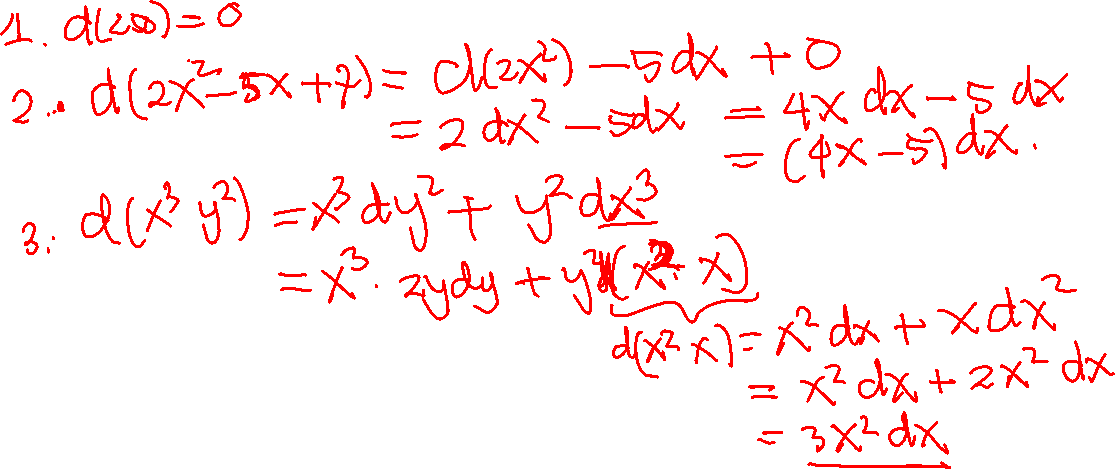 1. d(200) = 0
2. d(2x² - 5x + 7) = d(2x²) - 5dx + 0
= 2 dx² - 5dx = 4x dx - 5 dx
= (4x - 5) dx.
3. d(x³ y²) = x³ dy² + y² dx³
= x³ · 2y dy + y² d(x² · x)
d(x² x) = x² dx + x dx²
= x² dx + 2x² dx
= 3x² dx